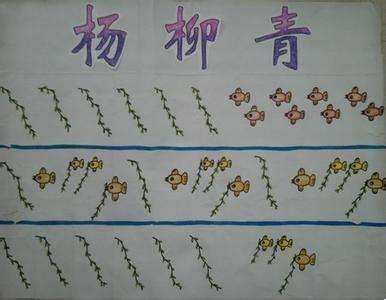 杨柳青